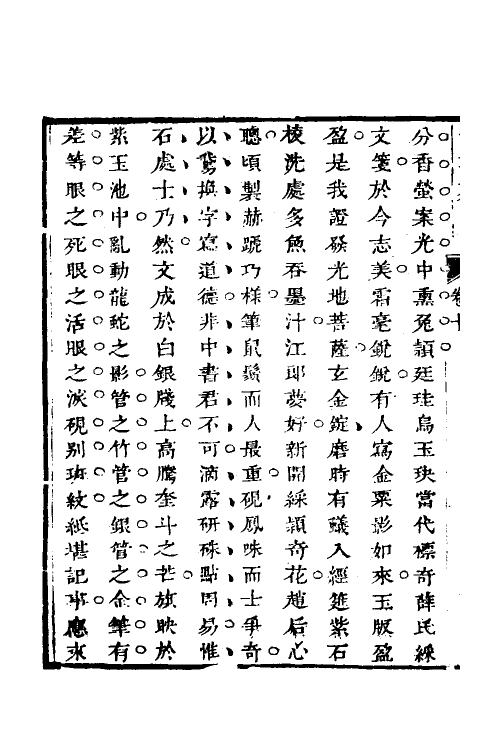 分香螢案光中熏兔頴廷珪烏玉玦當代標奇薛民綵
文箋於今志美霜毫銳銳有人寫金粟影如來玉版盈
盈是我證發光地菩薩玄金錠磨時有蟻入經筵紫石
棱洗處多魚吞墨汁江郎夢好新開綵頴奇花趙后心
聰頃製赫蹏巧樣筆鼠鬚而人最重硯鳳味而士爭奇
以鵞換字寫道德非中書君不可滴露研硃點周易惟
石處士乃然文成於白銀牋上高騰奎斗之芒旗映於
紫玉池中亂動龍蛇之影管之竹管之銀管之金筆有
差等眼之死眼之活眼之淚硯別斑紋紙堪記事應來
卷十